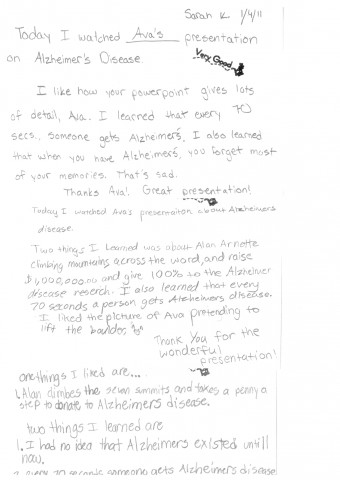 Sarah K. 1/4/11
Today I watched Ava's presentation
on Alzheimer's Disease.
Very Good
I like how your powerpoint gives lots
of detail, Ava. I learned that every 70
secs., someone gets Alzheimer's, I also learned
that when you have Alzheimers, you forget most
of your memories. That's sad.
Thanks Ava!. Great presentation!
Today I watched Avas presentaiton about Alzheimers
disease.
Two things I learned was about Alan Arnette
climbing mountains across the word, and raise
$1,000,000.00 and give 100% to the Alzheimer
disease reserch. I also learned that every
70 seconds a person gets Alzheimers disease.
I liked the picture of Ava pretending to
lift the boulder
Thank You for the
wonderful
presentation!
one things I liked are...
1. Alan climbes the seven summits and takes a penny a
step to donate to Alzheimers disease.
two things I learned are
1. I had no idea that Alzheimers existed until
now.
2. every 70 seconds someone gets Alzheimer's disease